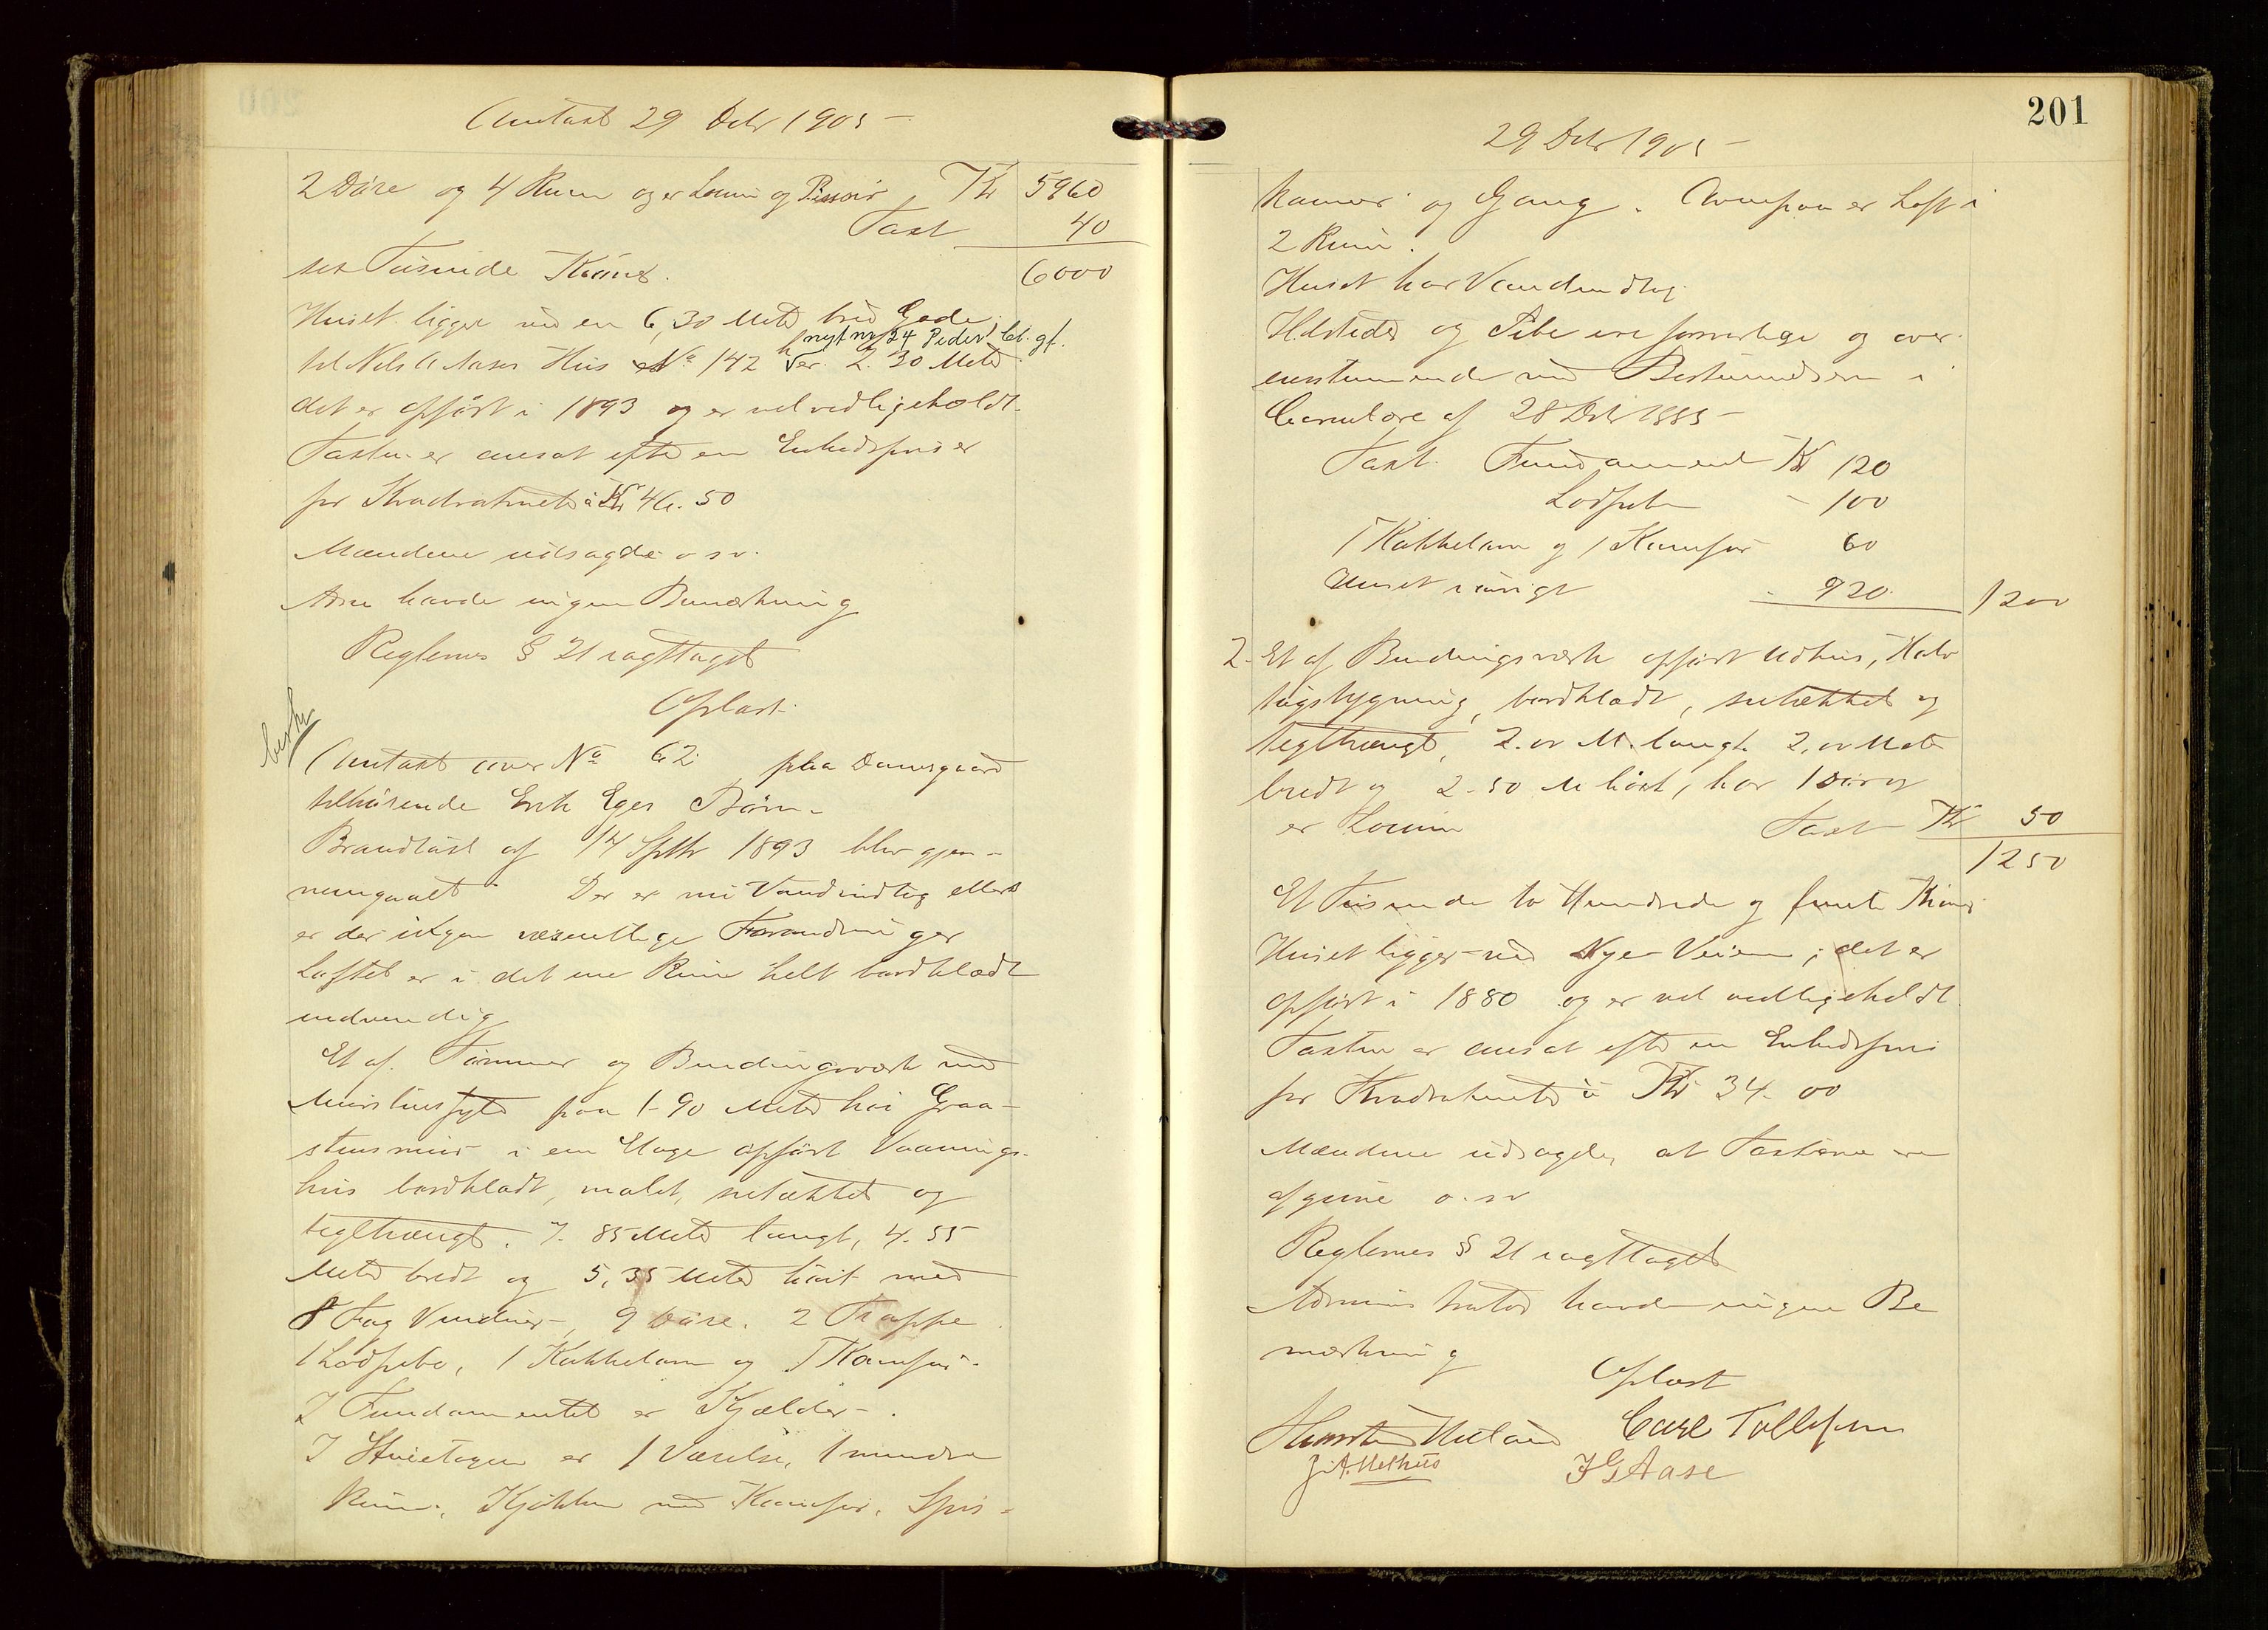 Omtaxt 29 Debr 1905 –
2 Döre og 4 Rum og er Locum og Pissoir, Kr 5960
Taxt 40
sex Tusinde Kroner. 6000
Huset ligger ved en 6,30 Meter bred Gade
nyt nr 24 Peder Cl. gt.
til Nels A Aases Hus No 142 er 2.30 Meter
det er opfört i 1893 og er vel vedligeholdt.
Taxten er ansat efter en Enhedspris er
pr Kvadratmeter à Kr 46.50
Mændene udsagde o sv.
havde ingen Bemærkning
Reglernes § 21 iagttaget
Oplæst.
Omtaxt over No 62 paa Damsgaard
tilhörende Erik Eges Börn.
Brandtaxt af 14 Septbr 1893 blev gjen-
nemgaaet. Der er nu Vandindlæg ellers
er der ingen væsentlige Forandringer
Loftet er i det ene Rum helt bordklædt
indvendig
Et af Tömmer og Bindingsværk med
Murstensfyld paa 1-90 Meter höi Graa-
stensmur i en Etage opfört Vaanings-
hus bordklædt, malet, sutækket og
teglhængt. 7.85 Meter langt, 4.55
Meter bredt og 5,35 Meter höit med
8 Fag Vinduer, 9 Döre. 2 Trappe
1 Lodpibe, 1 Kakkelovn og 1 Komfur.
I Fundamentet er Kjælder –.
I Stuetagen er 1 Værelse, 1 mindre
Rum, Kjökken med Komfur, Spis-
201
29 Debr 1905 –
kamer og Gang. Ovenpaa er Loft i
2 Rum.
Huset har Vandindlæg
Ildsteder og Pibe ere forsvarlige og over-
ensstemmende med Bestemmelserne i
Cirkulære af 28 Debr 1885 –
Taxt. Fundament Kr 120
Lodpiben – 100
1 Kakkelovn og 1 Komfur 60
Huset iövrigt 920 1200
2. Et af Bindingsværk opfört Udhus, Halv
tagsbygning, bordklædt, sutækket og
teglhængt, 2.00 M. langt 2,00 Meter
bredt og 2-50 M höit, har 1 Dör og
er Locum Taxt Kr 50
1250
Et Tusinde to Hundrede og femti Kroner
Huset ligger ved Nye Veien, det er
opfört i 1880 og er vel vedligeholdt
Taxten er ansat efter en Enhedspris
pr Kvadratmeter à Kr 34.00
Mændene udsagde, at Taxterne ere
afgivne o. sv
Reglernes § 21 iagttaget
Administrator havde ingen Be
mærkning
Oplæst
Carl Tollefsen
J. A. Methus J G Aase